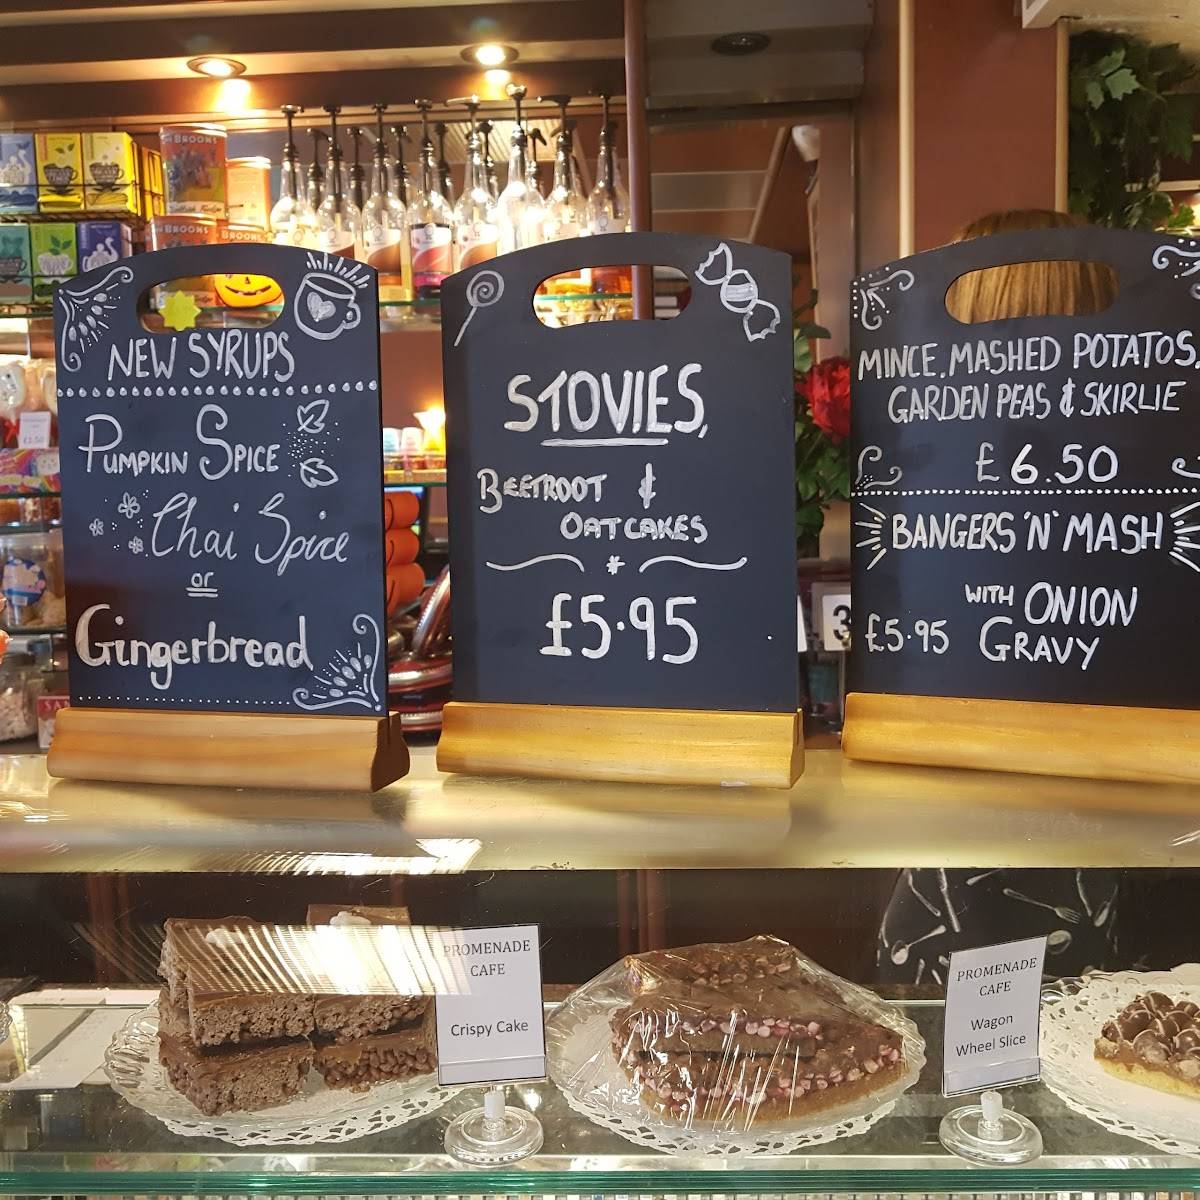 NEW SYRUPS
PUMPKIN SPICE
Chai Spice
or
Gingerbread
STOVIES,
BEETROOT &
OATCAKES
£5.95
MINCE, MASHED POTATOS,
GARDEN PEAS & SKIRLIE
£6.50
BANGERS 'N' MASH
WITH ONION
£5.95 GRAVY
PROMENADE
CAFE
Crispy Cake
PROMENADE
CAFE
Wagon
Wheel Slice
BROONS
BROONS
BROONS
3